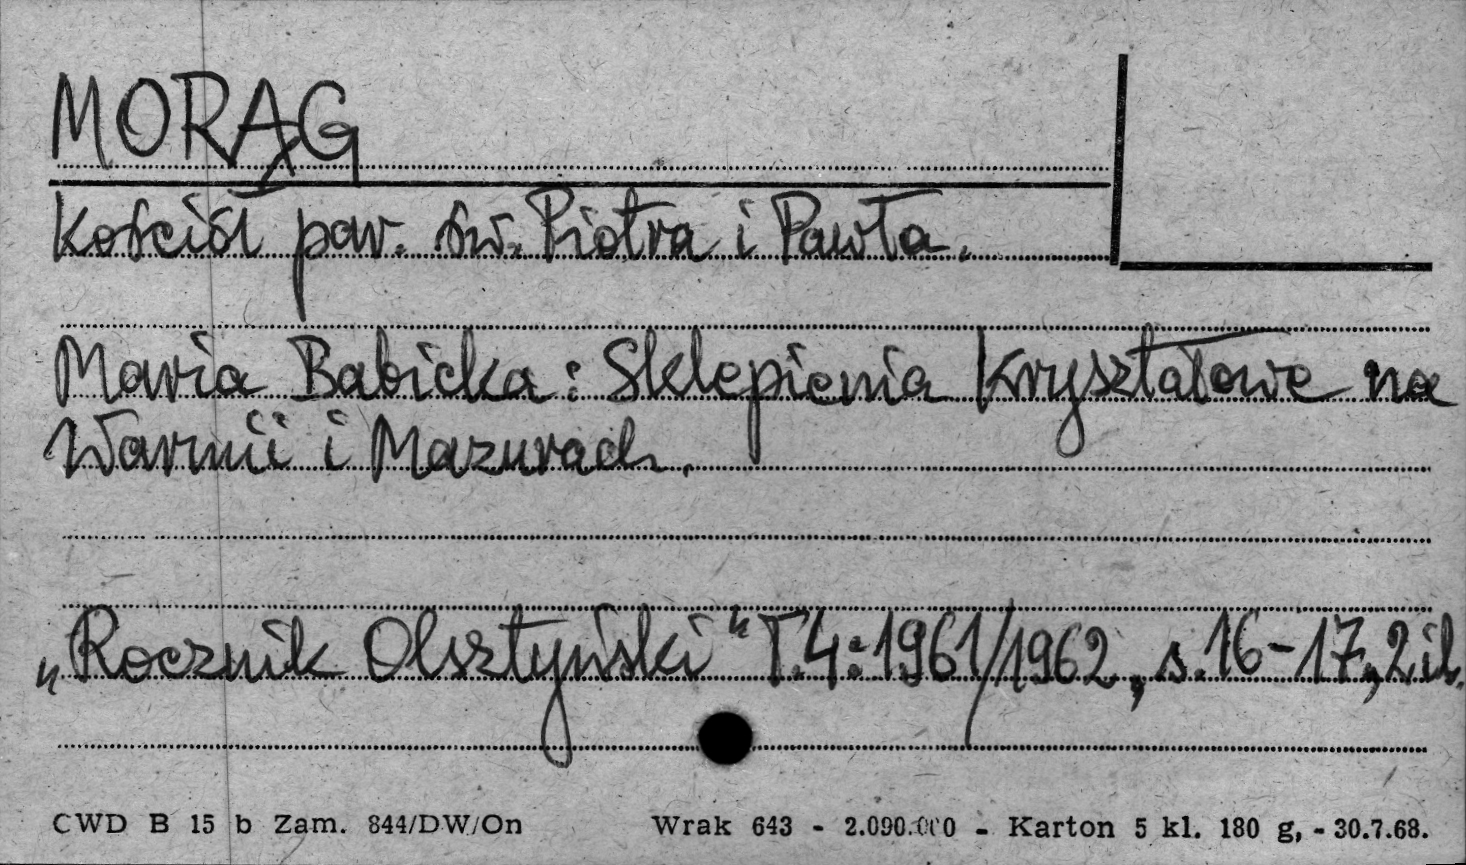 MORĄG
Kościół par. św. Piotra i Pawła.
Maria Babicka: Sklepienia Kryształowe na
Warmii i Mazurach.
„Rocznik Olsztyński" T.4:1961/1962, s.16-17, 2 il.
CWD B 15 b Zam. 844/DW/On Wrak 643 - 2.090.000 - Karton 5 kl. 180 g, - 30.7.68.